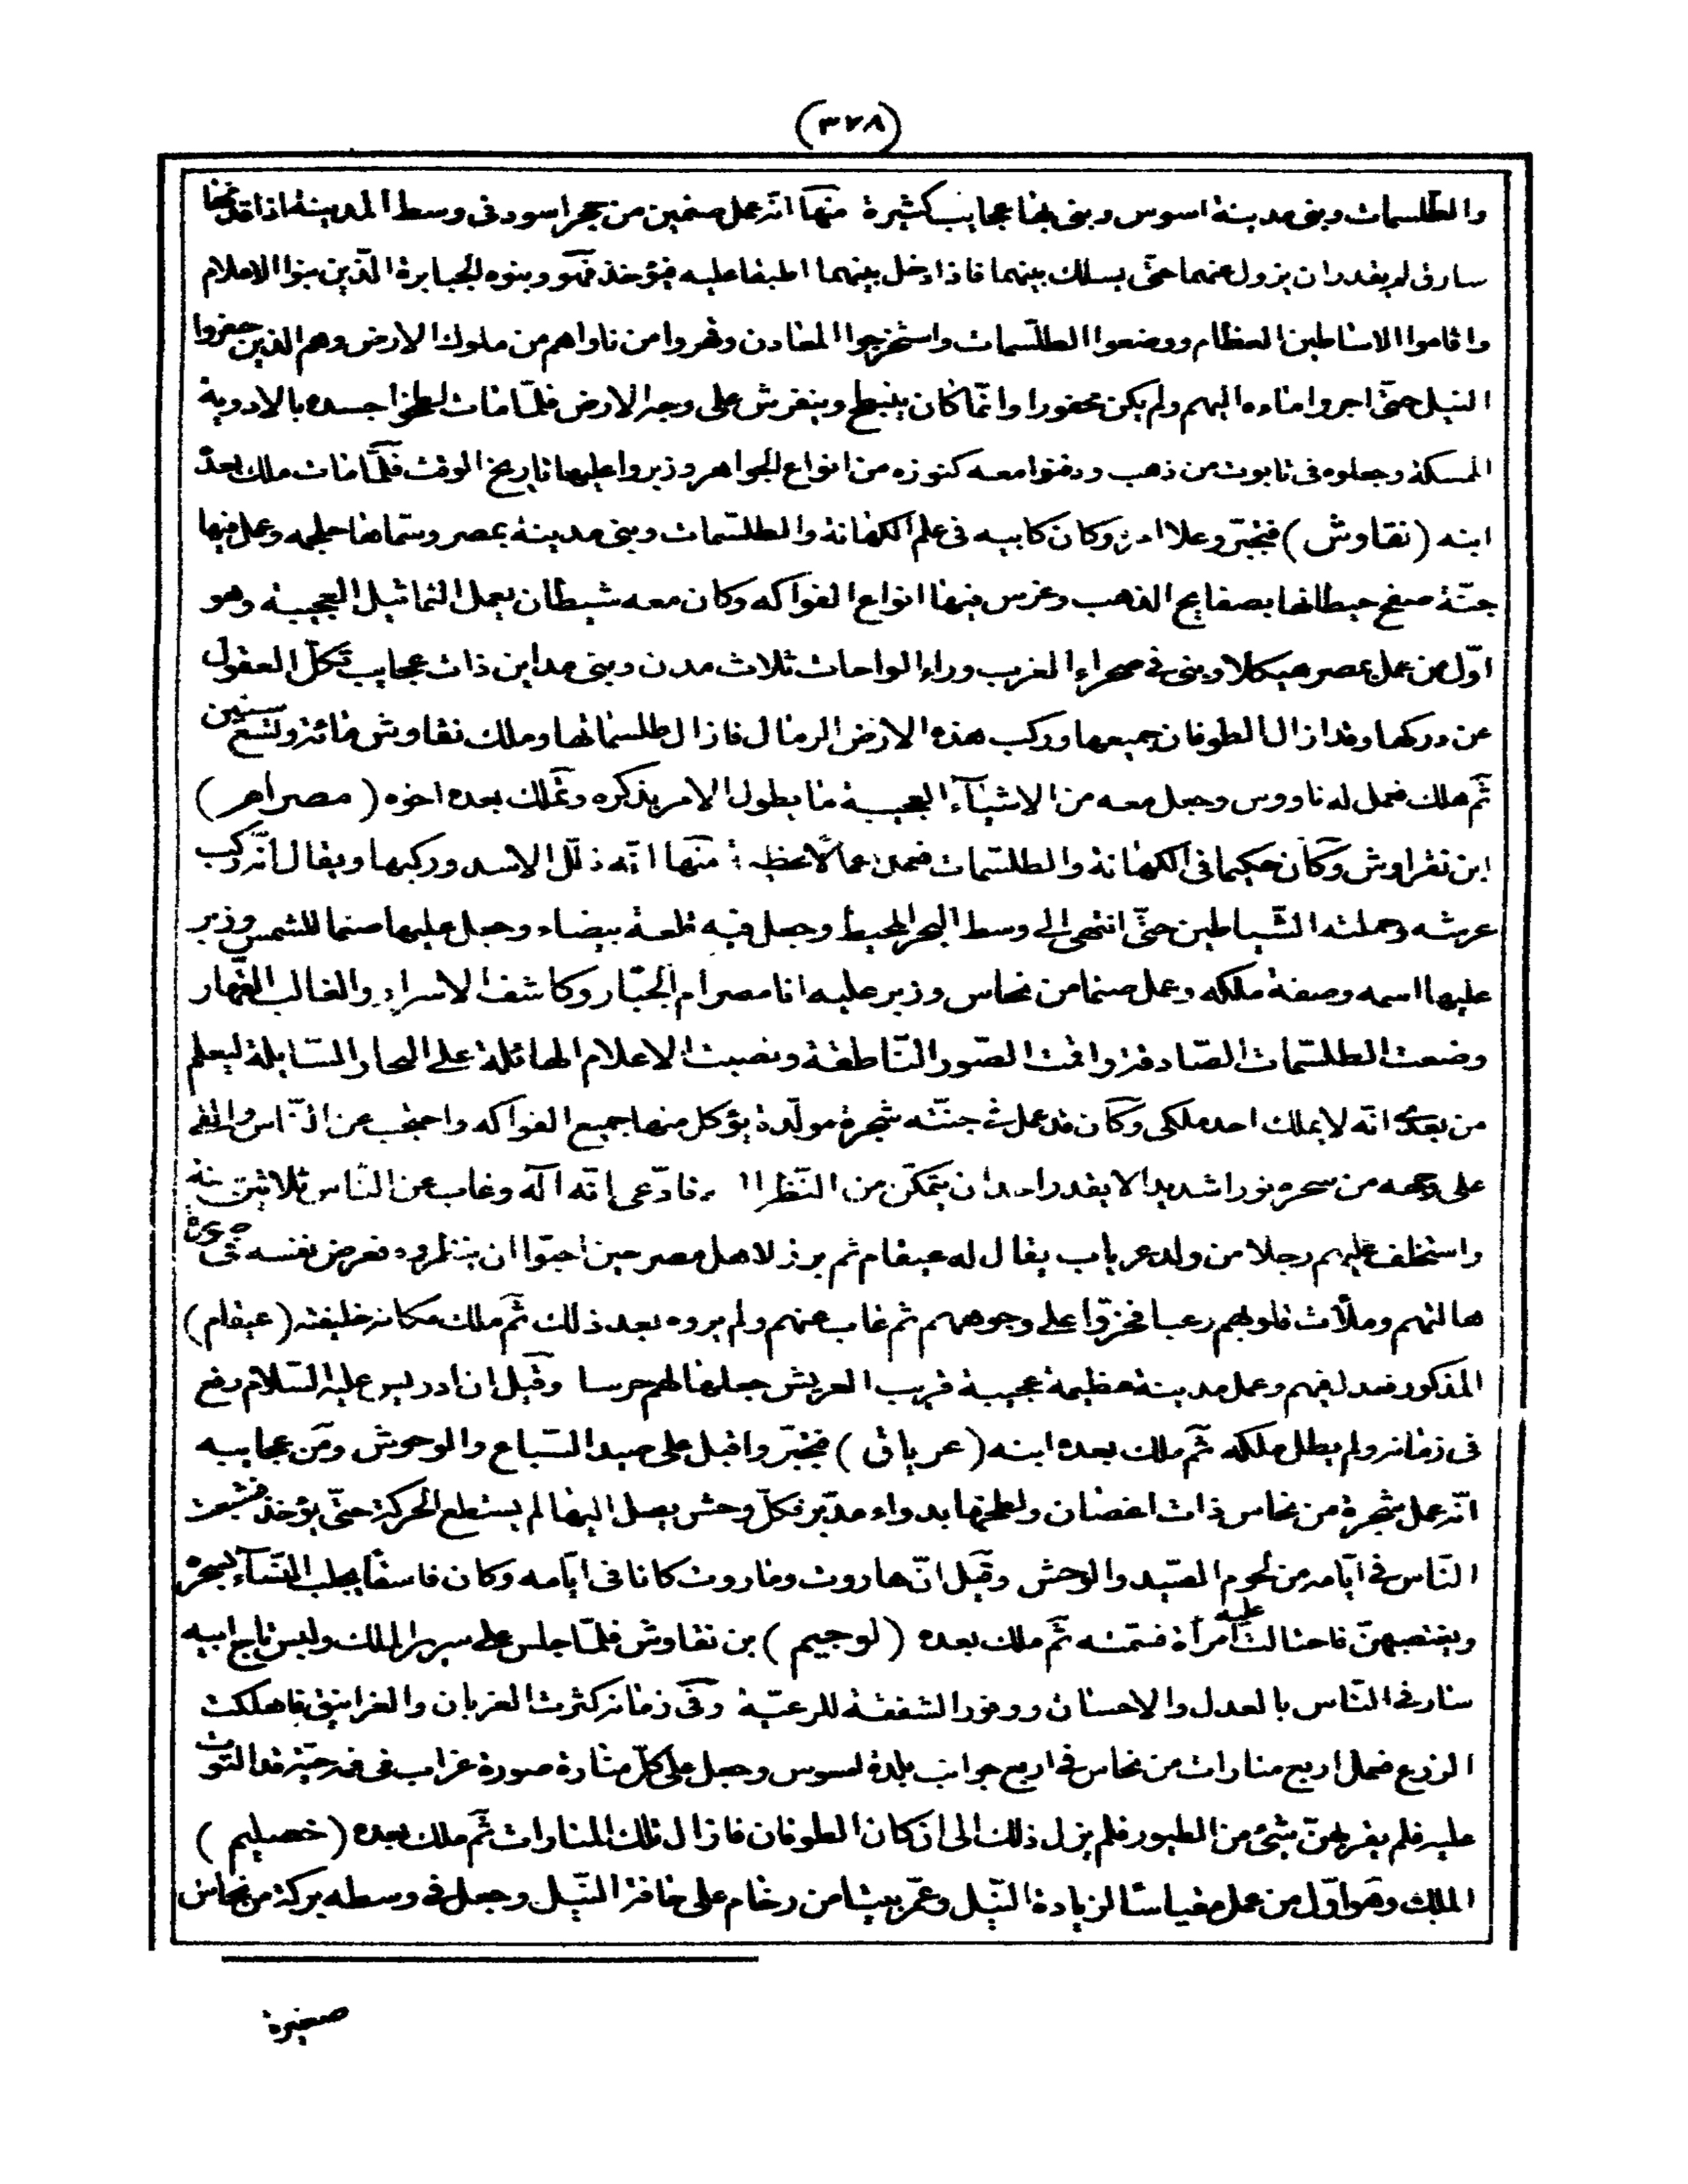 (٣٧٨)
والطلسمات وبنى مدينة اسوس وبنى بها عجايب كثيرة منها انه عمل صنمين من حجر اسود فى وسط المدينة اذا قدمها
سارق لم يقدر ان يزول عنهما حتى يسلك بينهما فاذا دخل بينهما اطبقا عليه فيؤخذ فهو وبنوه الجبابرة الّذين بنوا الاعلام
واقاموا الاساطين العظام ووضعوا الطلسمات واستخرجوا المعادن وقهروا من ناواهم من ملوك الارض وهم الذين حفروا
النيل حتّى اجروا ماءه اليهم ولم يكن محفورا وانّما كان ينبطح وينفرش على وجه الارض فلمّا مات لطخوا جسده بالادوية
الممسكة وجعلوه فى تابوت من ذهب ودفنوا معه كنوزه من انواع الجواهر وزبروا عليها تاريخ الوقت فلمّا مات ملك بعده
ابنه (نقاوش) فتجبّر وعلا امره وكان كابيه فى علم الكهانة والطلسّمات وبنى مدينة بمصر وسمّاها حلجمه وعمل فيها
جنّة صفح حيطانها بصفايح الذهب وغرس فيها انواع الفواكه وكان معه شيطان يعمل التماثيل العجيبة وهو
اوّل من عمل بمصر هيكلا وبنى فى صحراء الغرب وراء الواحات ثلاث مدن وبنى مداين ذات عجايب تكلّ العقول
عن دركها وقد ازال الطوفان جميعها وركب هذه الارض الرمال فازال طلسماتها وملك نقاوش مائة وتسع سنين
ثمّ هلك فعمل له ناووس وجعل معه من الاشيآء العجيبة ما يطول الامر بذكره وتملك بعده اخوه (مصرام)
ابن نقراوش وكان حكيما فى الكهانة والطلسّمات فعمل اعمالا عظيمة منها انّه ذلّل الاسد وركبها ويقال انّه ركب
عرشه وحملته الشّياطين حتّى انتهى الى وسط البحر المحيط وجعل فيه قلعة بيضاء وجعل عليها صنما للشمس وزبر
عليها اسمه وصفة ملكه وعمل صنما من نحاس وزبر عليه انا مصرام الجبّار وكاشف الاسرار والغالب القهار
وضعت الطلسّمات الصّادقة واقمت الصّور النّاطقة ونصبت الاعلام الهائلة على البحار السّايلة ليعلم
من بعدى انّه لا يملك احد ملكى وكان قد عمل فى جنّته شجرة مولّدة يؤكل منها جميع الفواكه واحتجب عن النّاس والقى
على وجهه من سحره نورا شديدا لا يقدر احد ان يتمكّن من النّظر اليه فادّعى انّه آله وغاب عن النّاس ثلاثين سنة
واستخلف عليهم رجلا من ولد عرياب يقال له عيقام ثم برز لاهل مصر حين احبّوا ان ينظروه فعرض نفسه فى صورة
هالتهم وملأت قلوبهم رعبا فخرّوا على وجوههم ثم غاب عنهم ولم يروه بعد ذلك ثمّ ملك مكانه خليفته (عيقام)
المذكور فعدل فيهم وعمل مدينة عظيمة عجيبة قريب العريش جعلها لهم حرسا وقيل ان ادريس عليه السّلام رفع
فى زمانه ولم يطل ملكه ثمّ ملك بعده ابنه (عرياق) فتجبّر واقبل على صيد السّباع والوحوش ومن عجايبه
انّه عمل شجرة من نحاس ذات اغصان ولطخها بدواء مدبّر فكلّ وحش يصل اليها لم يستطع الحركة حتّى يؤخذ فشبعت
النّاس فى ايّامه من لحوم الصّيد والوحش وقيل انّ هاروت وماروت كانا فى ايّامه وكان فاسقا يجلب النّسآء بسحره
ويغتصبهنّ فاحتالت عليه امرأة فسمّته ثمّ ملك بعده (لوجيم) بن نقاوش فلمّا جلس على سرير الملك ولبس تاج ابيه
سار فى النّاس بالعدل والاحسان ووفور الشفقة للرعيّة وفى زمانه كثرت الغربان والغرانيق فاهلكت
الزرع فعمل اربع منارات من نحاس فى اربع جوانب بلدة اسوس وجعل على كلّ منارة صورة غراب فى فمه حيّة قد التوت
عليه فلم يقربهنّ شىء من الطيور فلم يزل ذلك الى ان كان الطوفان فازال تلك المنارات ثمّ ملك بعده (خصليم)
الملك وهو اوّل من عمل مقياسا لزيادة النّيل وعمّر بيتا من رخام على حافة النّيل وجعل فى وسطه بركة من نحاس
صغيرة